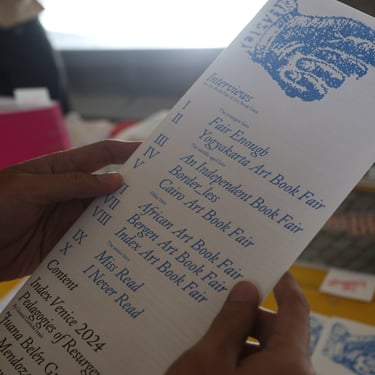 Interviews
I
The youngest fairs
Fair Enough
II
Yogyakarta Art Book Fair
The middle aged fairs
III
An Independent Book Fair
IV
Border_less
V
Cairo Art Book Fair
VI
African Art Book Fair
VII
Bergen Art Book Fair
VIII
Index Art Book Fair
IX
Miss Read
X
I Never Read
Content
Index Venice 2024
Pedagogies of Resurgen
Juana Belén G
Mendoz